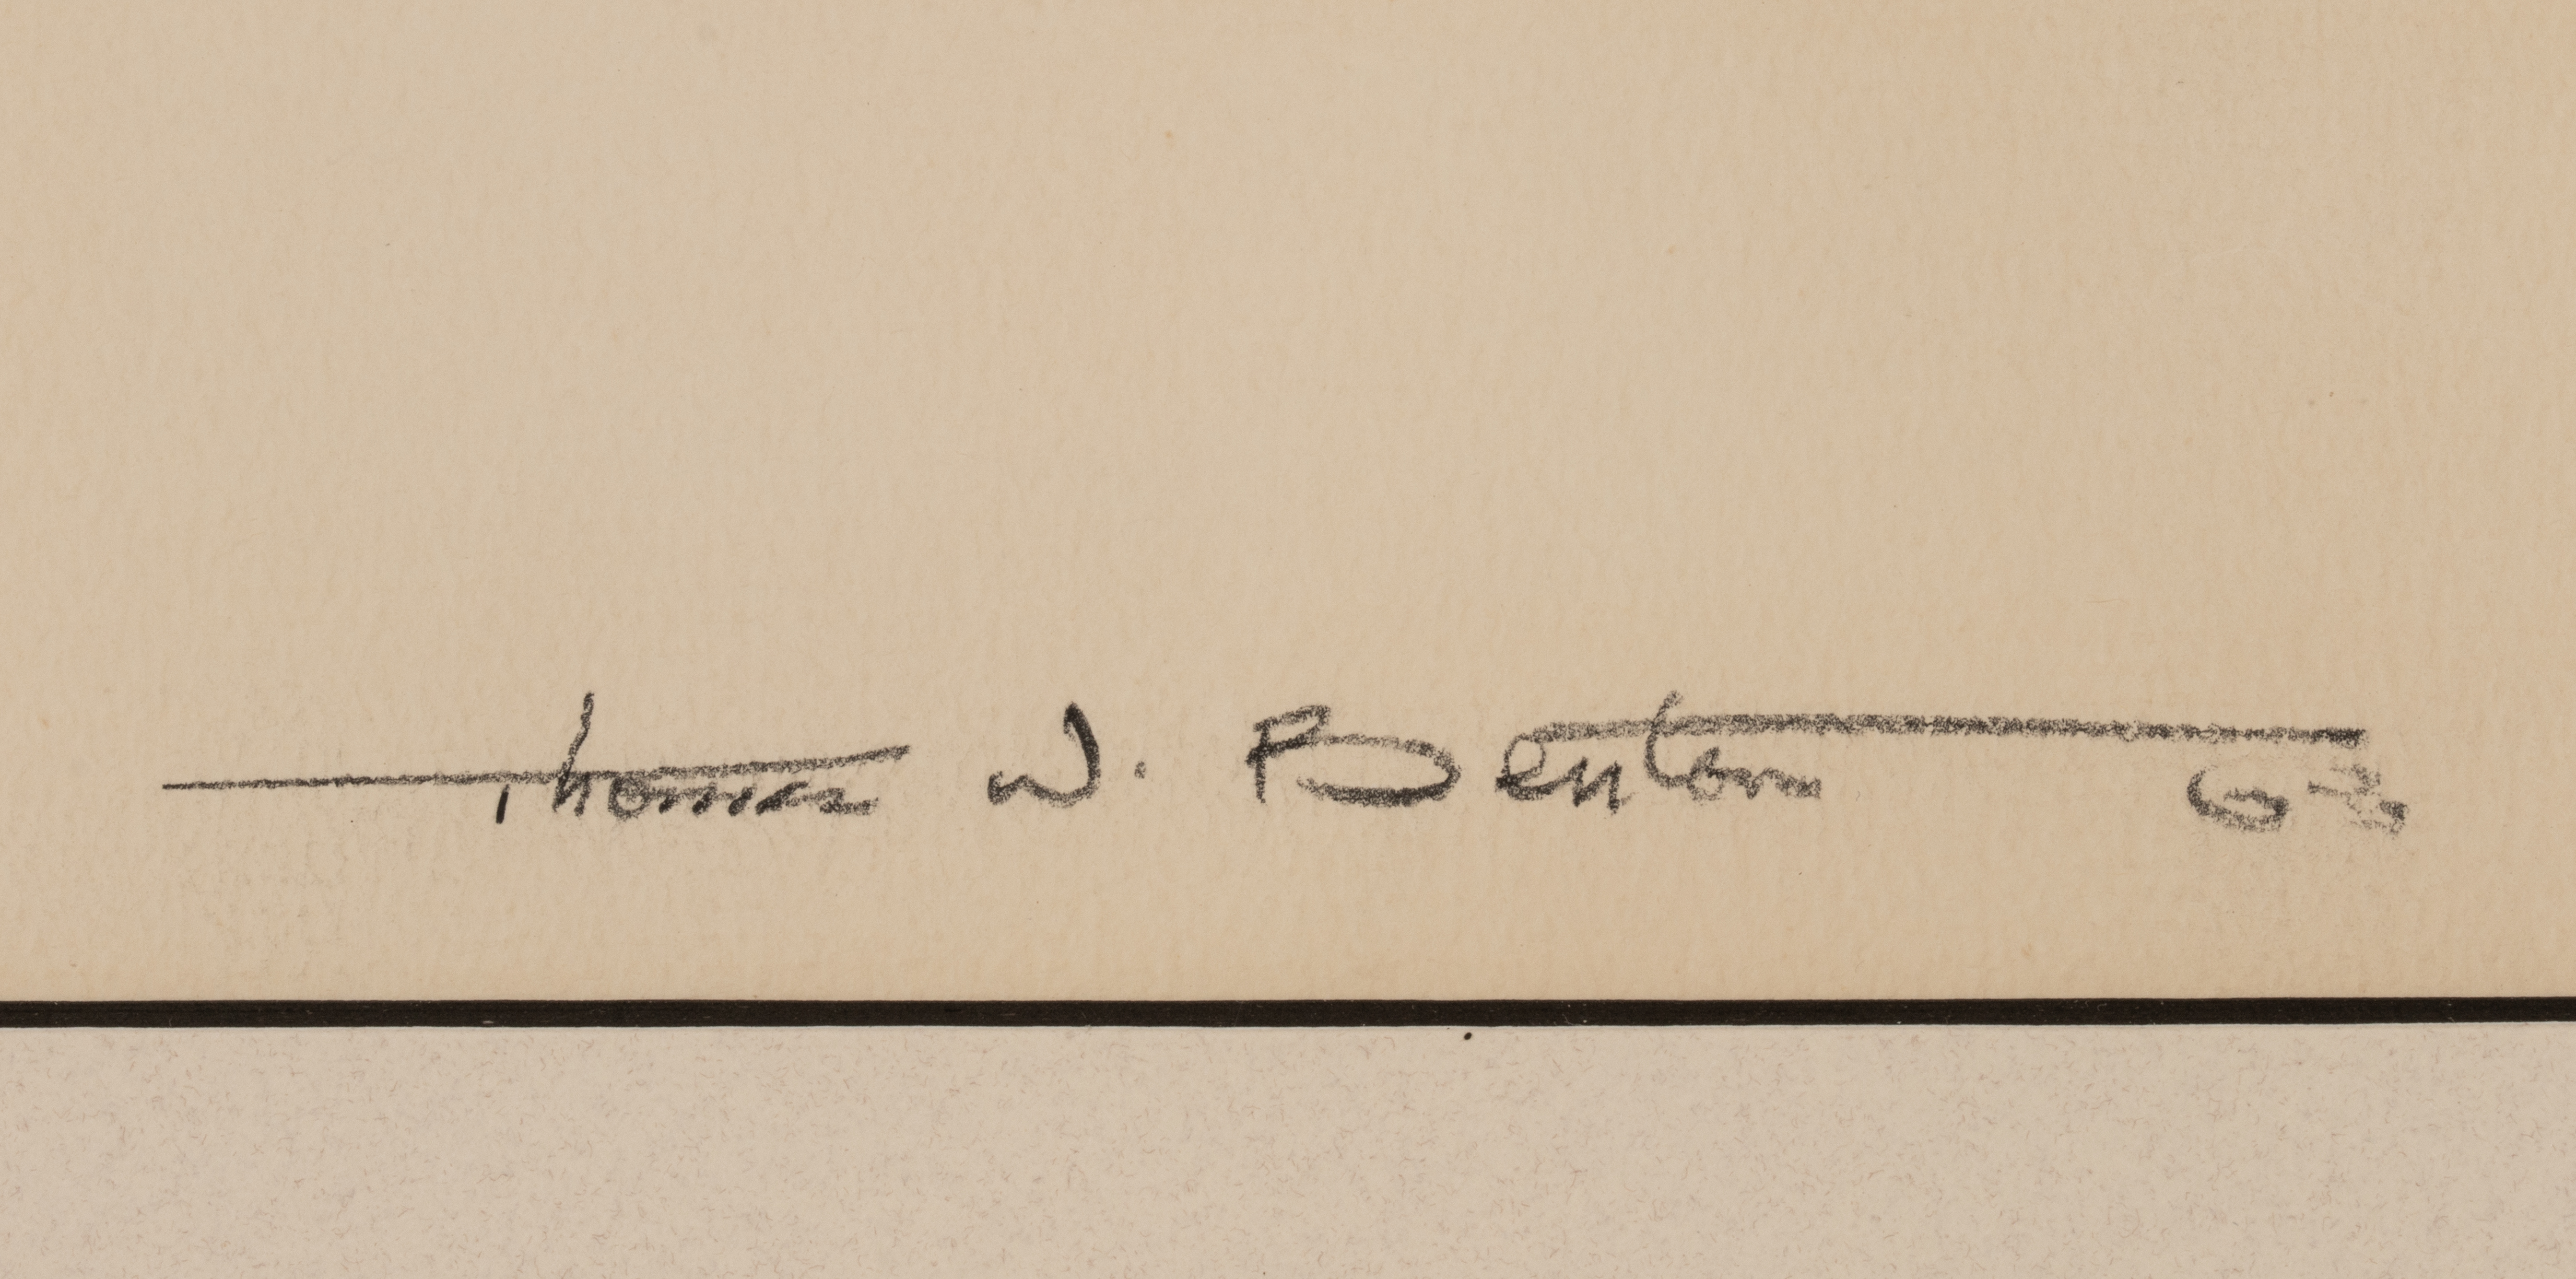 Thomas W. Benton